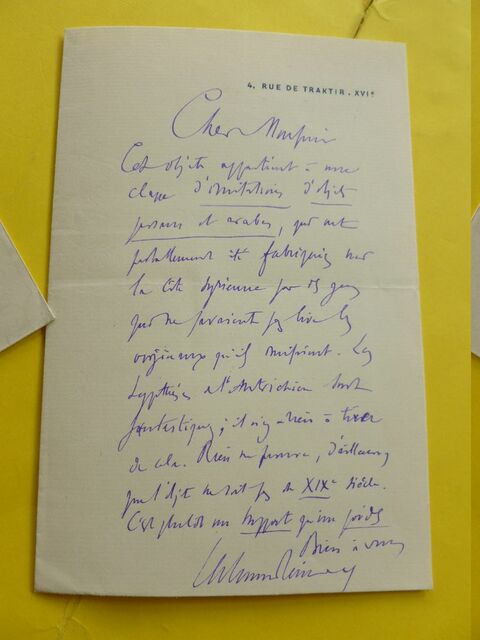 4, RUE DE TRAKTIR. XVIe
Cher Monsieur
Cet objet appartient à une
classe d'imitations d'objets
persans et arabes, qui ont
partiellement été fabriqués sur
la côte syrienne par des gens
qui ne savaient pas lire les
originaux qu'ils imitaient. Les
hypothèses de l'Autrichien sont
fantastiques; il n'y a rien à tirer
de cela. Rien ne prouve, d'ailleurs,
que l'objet ne soit pas du XIXe siècle.
C'est plutôt un support qu'un poids
Bien à vous